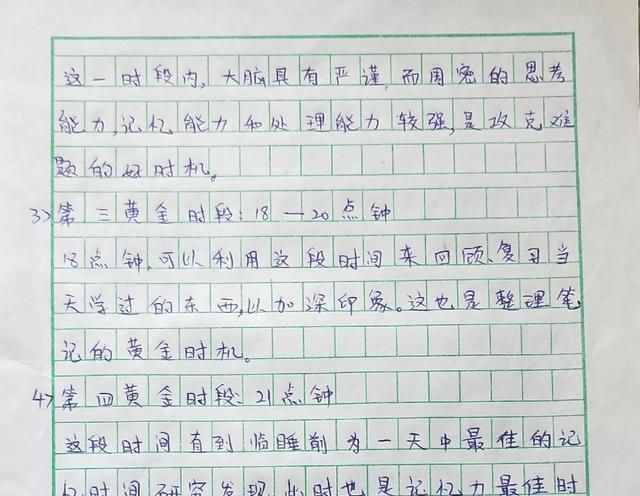 这一时段内,大脑具有严谨而周密的思考
能力,记忆能力和处理能力较强,是攻克难
题的好时机。
3>第三黄金时段:18—20点钟
18点钟,可以利用这段时间来回顾、复习当
天学过的东西,以加深印象。这也是整理笔
记的黄金时机。
4>第四黄金时段:21点钟
这段时间直到临睡前为一天中最佳的记
忆时间研究发现,此时也是记忆力最佳时